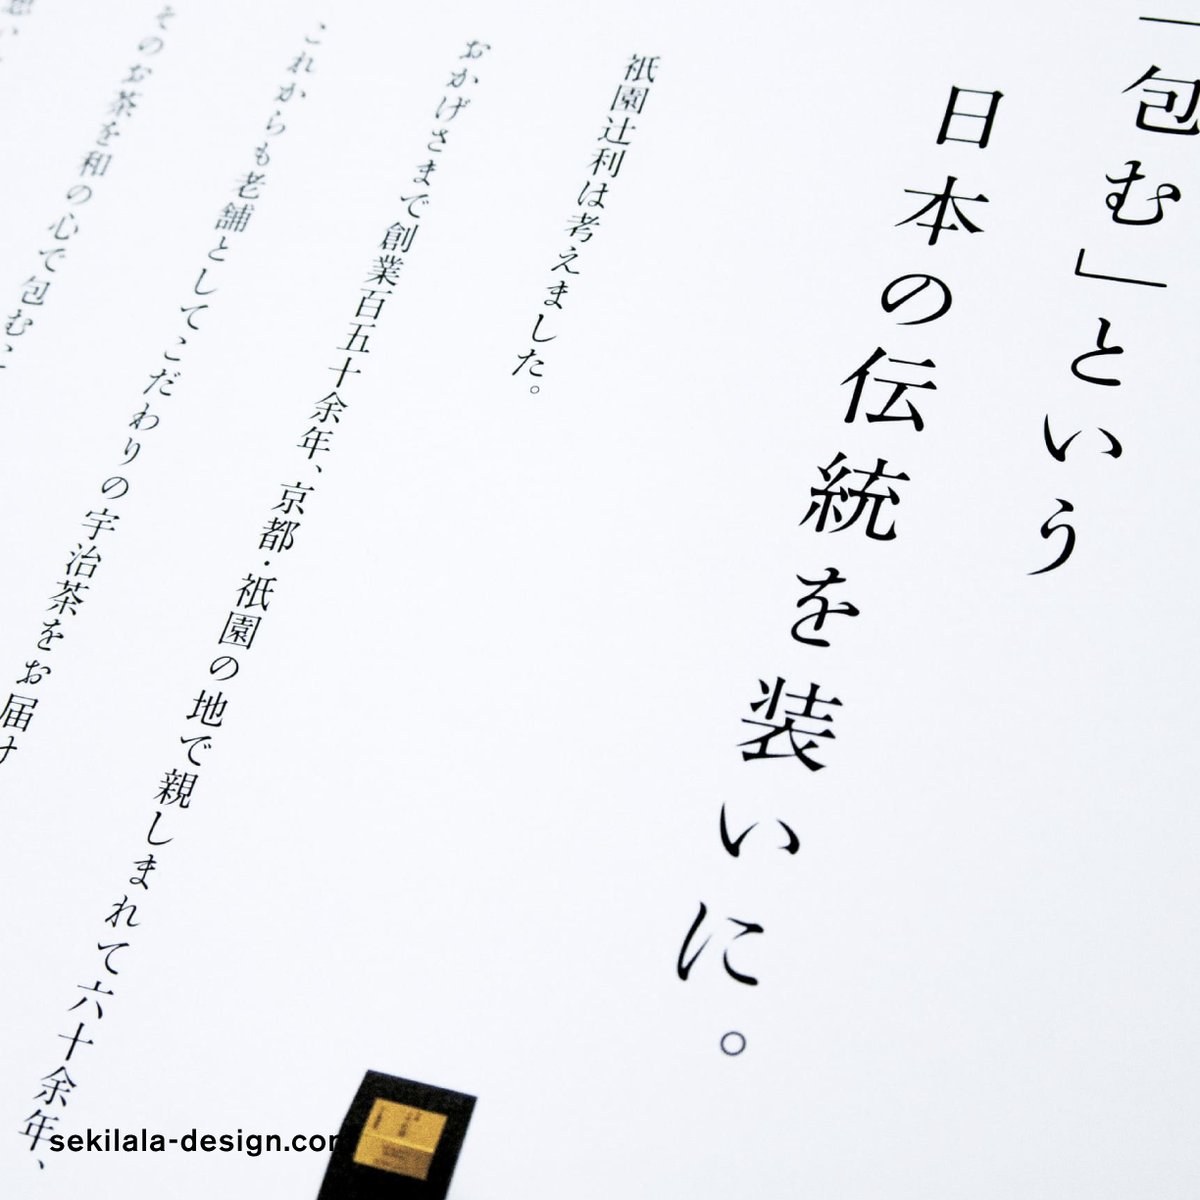 「包む」という
日本の伝統を装いに。
祇園辻利は考えました。
おかげさまで創業百五十余年、京都・祇園の地で親しまれて六十余年、
これからも老舗としてこだわりの宇治茶をお届け
そのお茶を和の心で包む、
想い
sekilala-design.com